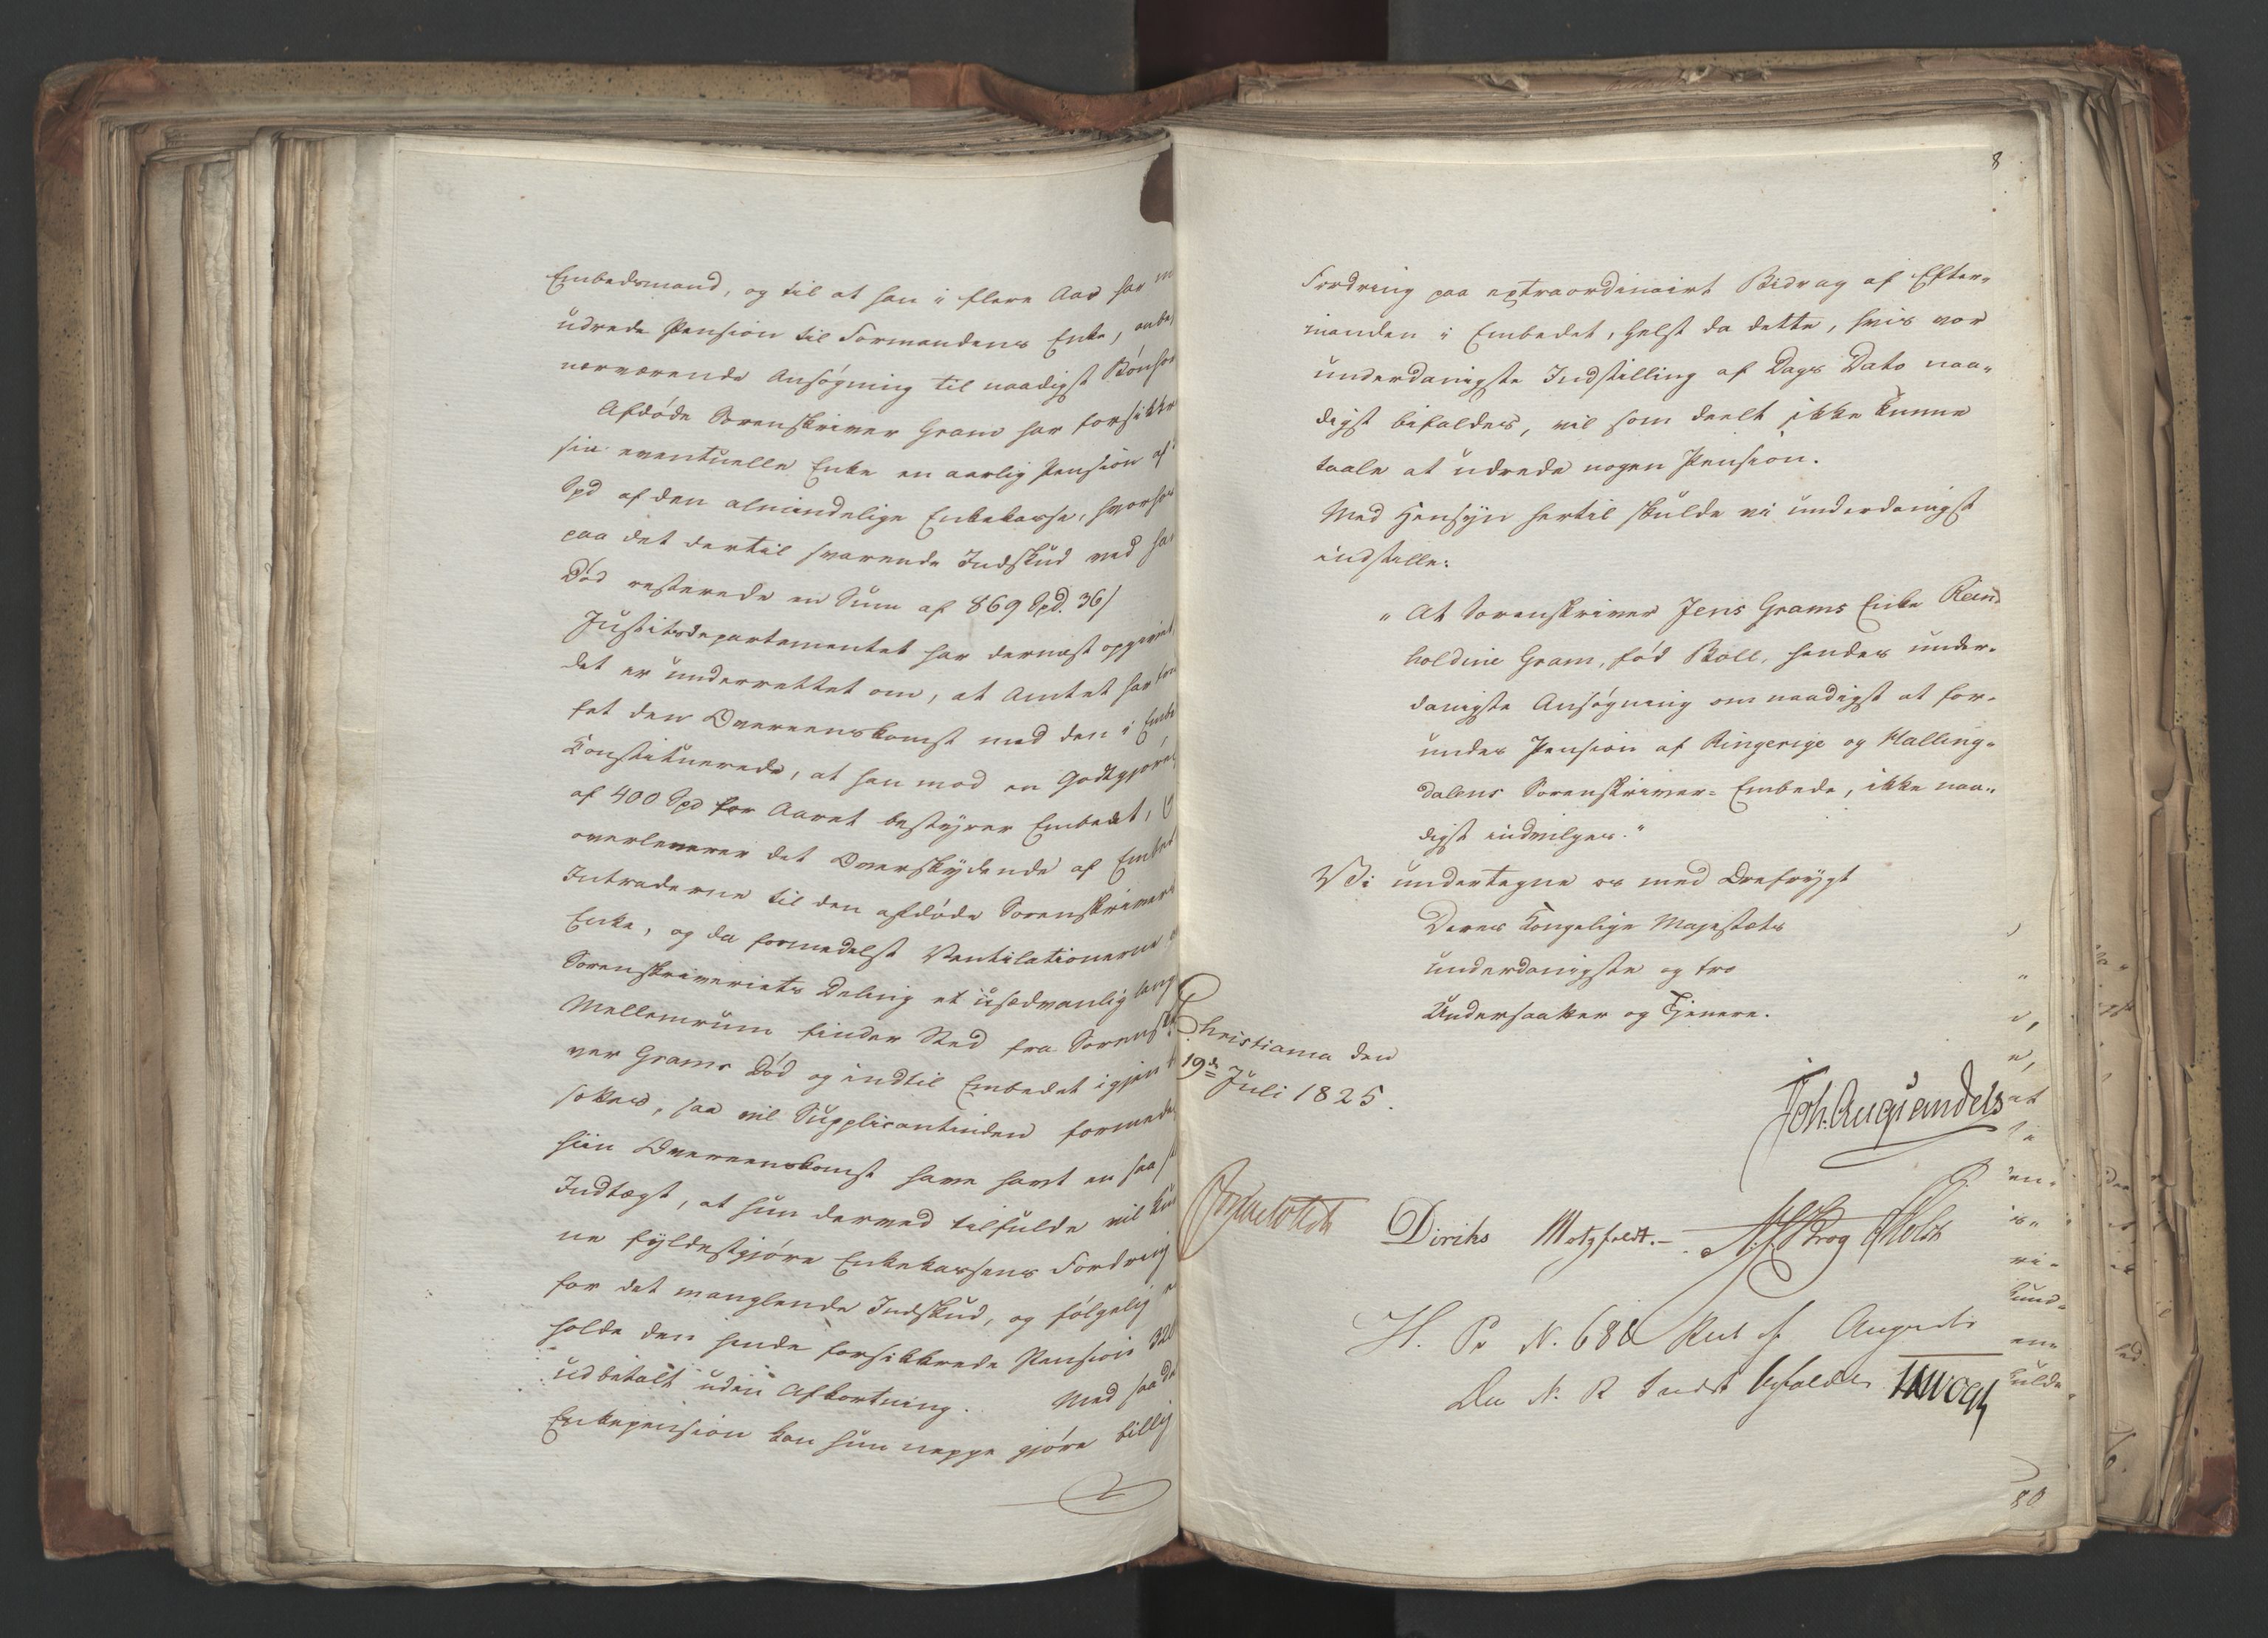 Embedsmand, og til at han i flere Aar har m
udrede Pension til Formandens Enke, anbe
nærværende Ansøgning til naadigst Bønhør
Afdøde Sorenskriver Gram har forsikkr
sin eventuelle Enke en aarlig Pension af
Spd af den almindelige Enkekasse, hvorhos
paa det dertil svarende Indskud ved ha
Død resterede en Sum af 869 Spd. 36/
Justitsdepartementet har dernæst opgivet
det er underrettet om, at Amtet har
fet den Overeenskomst med den i Embe
Constituerede, at han mod en Godtgjørel
af 400 Spd for Aaret bestyrer Embedet,
overleverer det Overskydende af Embed
Intraderne til den afdøde Sorenskrivers
Enke, og da formedelst Ventilationerne
Sorenskriveriets Deling et usædvanlig lang
Mellemrum finder Sted fra Sorenskr
ver Grams Død og indtil Embedet igjen
sættes, saa vil Supplicantinden formede
hiin Overeenskomst have havt en saa
Indtægt, at hun dermed tilfulde vil kun
ne fyldestgjøre Enkekassens Fordring
for det manglende Indskud, og følgelig
holde den hende forsikkrede Pension
udbetalt uden Afkortning. Med saada
Enkepension kan hun neppe gjøre billig
8
Fordring paa extraordinairt Bidrag af Efter-
manden i Embedet, helst da dette, hvis vor
underdanigste Indstilling af Dags Dato naa-
digst bifaldes, vil som deelt ikke kunne
taale at udrede nogen Pension.
Med Hensyn hertil skulde vi underdanigst
indstille:
"At Sorenskriver Jens Grams Enke Rein
holdine Gram, fød Boll, hendes under-
danigste Ansøgning om naadigst at for-
undes Pension af Ringerige og Halling-
dalens Sorenskriver-Embede, ikke naa-
digst indvilges."
Vi undertegne os med Ærefrygt
Deres Kongelige Majestæts
underdanigste og tro
Undersaatter og Tjenere.
Christiania den
19de Juli 1825.
Joh. Aug. Sandels
Diriks Motzfeldt.- Krog Holst
H. Pr N. 688 August
Den N. R. Indst bifaldes